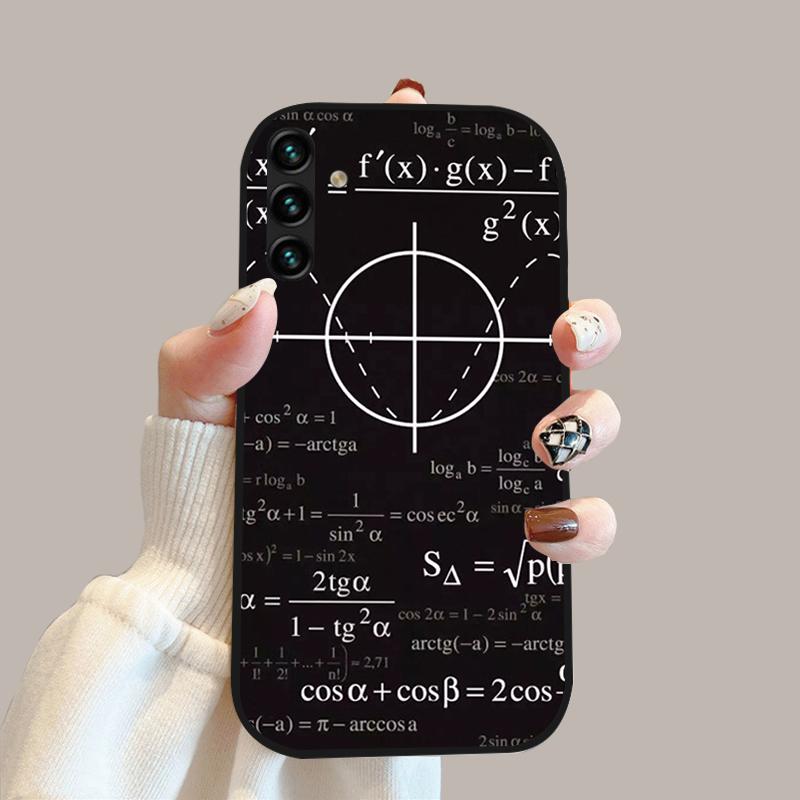 sin α cos α
logₐ b/c = logₐ b – lo
(x ′ = f′(x)·g(x) – f
(x g²(x)
cos 2α = c
+ cos² α = 1
–a) = –arctga
logₐ b = log꜀ b / log꜀ a
= r logₐ b
tg²α+1 = 1/sin² α = cosec²α
sin α
os x)² = 1 – sin 2x
S△ = √p(p
α = 2tgα / 1 – tg²α
tgx =
cos 2α = 1 – 2 sin² α
arctg(–a) = –arctg
+ 1/1! + 1/2! + ... + 1/n!) ≈ 2,71
cos α + cos β = 2cos
(–a) = π – arccos a
2 sin α